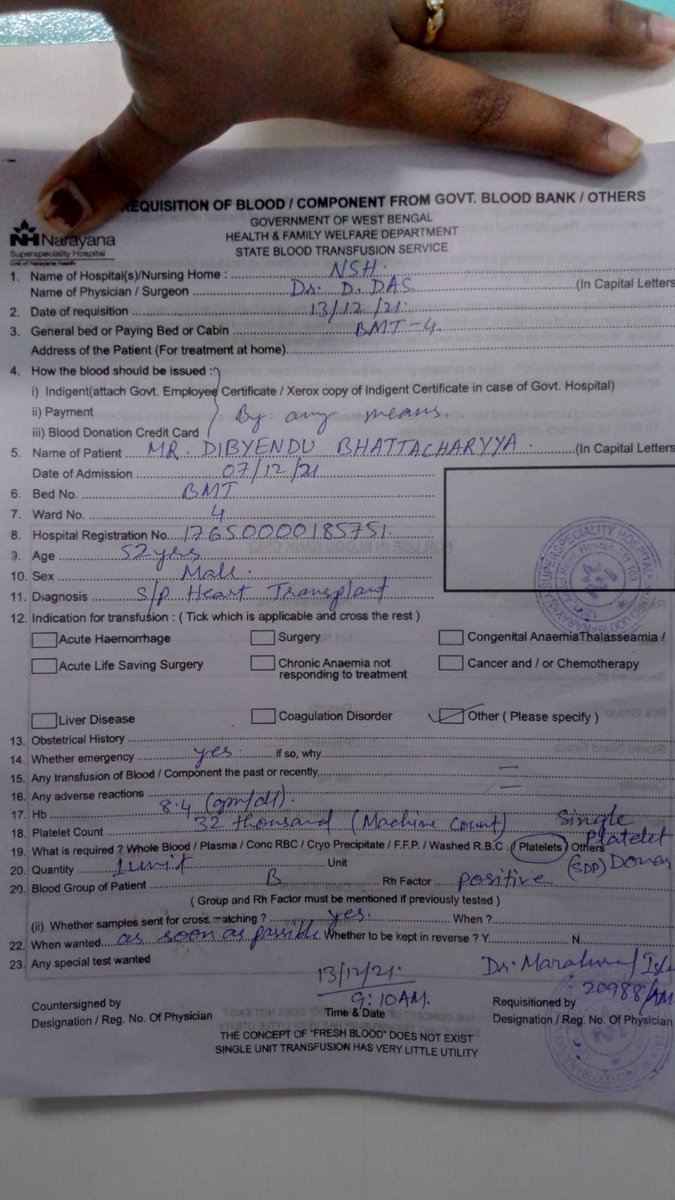 REQUISITION OF BLOOD / COMPONENT FROM GOVT. BLOOD BANK / OTHERS
GOVERNMENT OF WEST BENGAL
HEALTH & FAMILY WELFARE DEPARTMENT
STATE BLOOD TRANSFUSION SERVICE
NH Narayana
Superspeciality Hospital
Unit of Narayana Health
1. Name of Hospital(s)/Nursing Home : NSH.
Name of Physician / Surgeon Dr. D. DAS (In Capital Letters
2. Date of requisition 13/12/21.
3. General bed or Paying Bed or Cabin BMT-4.
Address of the Patient (For treatment at home)
4. How the blood should be issued :
i) Indigent(attach Govt. Employee Certificate / Xerox copy of Indigent Certificate in case of Govt. Hospital)
ii) Payment By any means.
iii) Blood Donation Credit Card
5. Name of Patient MR. DIBYENDU BHATTACHARYYA. (In Capital Letters
Date of Admission 07/12/21
6. Bed No. BMT
7. Ward No. 4
8. Hospital Registration No. 17650000185751.
9. Age 52yrs
10. Sex Male.
11. Diagnosis S/p Heart Transplant
12. Indication for transfusion : ( Tick which is applicable and cross the rest )
Acute Haemorrhage Surgery Congenital AnaemiaThalasseamia /
Acute Life Saving Surgery Chronic Anaemia not responding to treatment Cancer and / or Chemotherapy
Liver Disease Coagulation Disorder Other ( Please specify )
13. Obstetrical History
14. Whether emergency yes. if so, why
15. Any transfusion of Blood / Component the past or recently —
16. Any adverse reactions —
17. Hb 8.4 (gm/dl).
18. Platelet Count 32 thousand (Machine Count)
19. What is required ? Whole Blood / Plasma / Conc RBC / Cryo Precipitate / F.F.P. / Washed R.B.C. Platelets Others Single Platelet (SDP) Donor
20. Quantity 1 unit Unit
20. Blood Group of Patient B Rh Factor positive
( Group and Rh Factor must be mentioned if previously tested )
(ii) Whether samples sent for cross matching ? yes. When ?
22. When wanted as soon as possible Whether to be kept in reverse ? Y N
23. Any special test wanted
13/12/21.
9:10AM.
Time & Date
Dr.
20988
Countersigned by
Designation / Reg. No. Of Physician
Requisitioned by
Designation / Reg. No. Of Physician
THE CONCEPT OF "FRESH BLOOD" DOES NOT EXIST
SINGLE UNIT TRANSFUSION HAS VERY LITTLE UTILITY